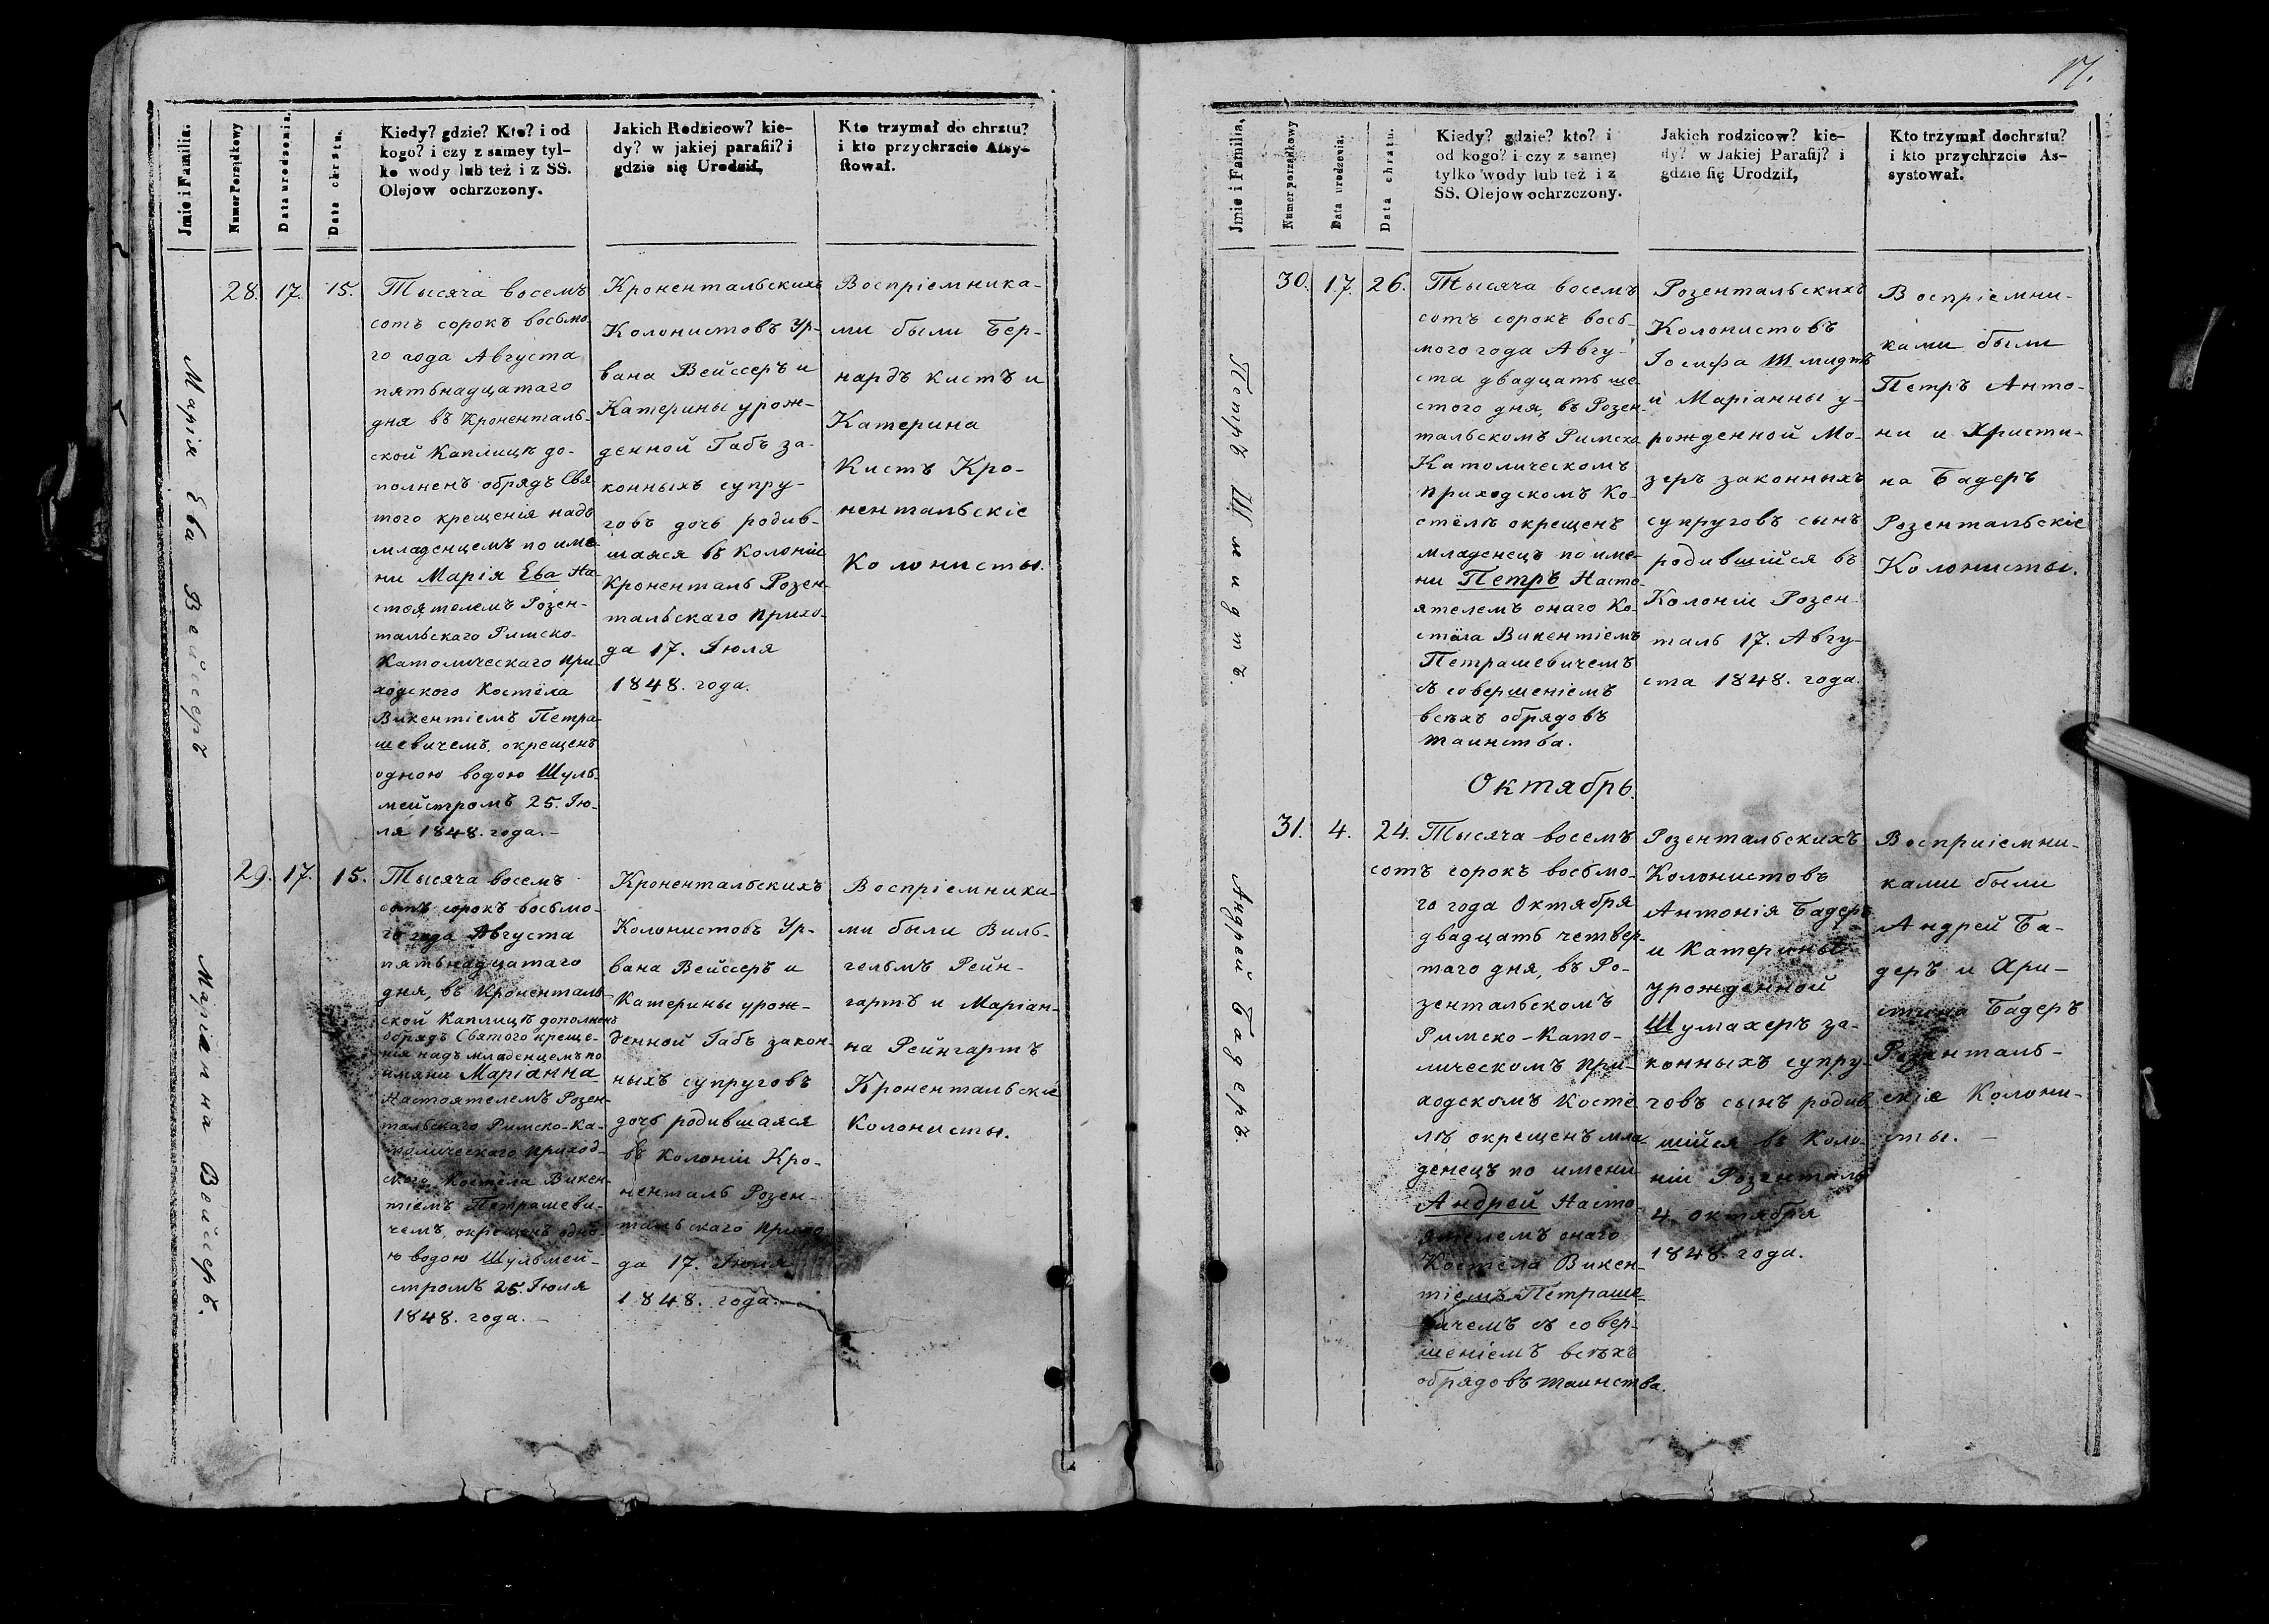 Jmie i Familia.
Numer Porządkowy
Data urodzenia.
Data chrztu.
Kiedy? gdzie? Kto? i od
kogo? i czy z samey tyl-
ko wody lub też i z SS.
Olejow ochrzczony.
Jakich Rodzicow? kie-
dy? w jakiej parafii? i
gdzie się Urodził,
Kto trzymał do chrztu?
i kto przychrzcie Assy-
stował.
Марія Ева Вейссеръ
28. 17. 15.
Тысяча восемъ
сотъ сорокъ восьмо-
го года Августа
пятьнадцатаго
дня въ Кроненталь-
ской Каплицѣ до-
полненъ обрядъ Свя
того крещенія надъ
младенцемъ по име-
ни Марія Ева На-
стоятелемъ Розен-
тальскаго Римско-
Католическаго При-
ходского Костёла
Викентіемъ Петра-
шевичемъ, окрещенъ
одною водою Шуль-
мейстромъ 25. Ію-
ля 1848. года. –
Кронентальскихъ
Колонистовъ Ур-
вана Вейссеръ и
Катерины урож-
денной Габъ за-
конныхъ супру-
говъ дочь родив-
шаяся въ Колоніи
Кроненталь Розен-
тальскаго прихо-
да 17. Іюля
1848. года.
Воспріемника-
ми были Бер-
нардъ Кистъ и
Катерина
Кистъ Кро-
нентальскіе
Колонисты.
Маріанна Вейсеръ.
29. 17. 15.
Тысяча восемъ
сотъ сорокъ восьмо-
го года Августа
пятьнадцатаго
дня, въ Кроненталь-
ской Каплицѣ дополненъ
обрядъ Святого креще-
нія надъ младенцемъ по
имяни Маріанна
Настоятелемъ Розен-
тальскаго Римско-Ка-
толическаго приход-
ского Костёла Викен-
тіемъ Петрашеви-
чемъ, окрещенъ одно-
ю водою Шульмей-
стромъ 25. Іюля
1848. года. –
Кронентальскихъ
Колонистовъ Ур-
вана Вейссеръ и
Катерины урож-
денной Габъ закон-
ныхъ супруговъ
дочь родившаяся
въ Колоніи Кро-
ненталь Розен-
тальскаго прихо
да 17. Іюля
1848. года.
Воспріемника-
ми были Виль-
гельмъ Рейн-
гартъ и Маріан-
на Рейнгартъ
Кронентальскіе
Колонисты.
17.
Jmie i Familia,
Numer porządkowy
Data urodzenia.
Data chrztu.
Kiedy? gdzie? kto? i
od kogo? i czy z samej
tylko wody lub też i z
SS. Olejow ochrzczony.
Jakich rodzicow? kie-
dy? w Jakiej Parafij? i
gdzie się Urodził,
Kto trzymał dochrztu?
i kto przychrzcie As-
systował.
Петръ Шмидтъ.
30. 17. 26.
Тысяча восемъ
сотъ сорокъ вось-
мого года Авгу-
ста двадцать ше-
стого дня, въ Розен-
тальскомъ Римско
Католическомъ
приходскомъ Ко-
стёлѣ окрещенъ
младенецъ по име-
ни Петръ Насто-
ятелемъ онаго Ко-
стёла Викентіемъ
Петрашевичемъ
съ совершеніемъ
всѣхъ обрядовъ
таинства.
Розентальскихъ
Колонистовъ
Іосифа Шмидтъ
и Маріанны у-
рожденной Мо-
зеръ законныхъ
супруговъ сынъ
родившійся въ
Колоніи Розен-
таль 17. Авгу-
ста 1848. года.
Воспріемни-
ками были
Петръ Анто-
ни и Христи-
на Бадеръ
Розентальскіе
Колонисты.
Октябрь.
Андрей Бадеръ.
31. 4. 24.
Тысяча восемъ
сотъ сорокъ восьмо-
го года Октября
двадцать четвер-
таго дня, въ Ро-
зентальскомъ
Римско-Като-
лическомъ при-
ходскомъ Костё
лѣ окрещенъ мла-
денецъ по имени
Андрей Насто-
ятелемъ онаго
Костёла Викен-
тіемъ Петраше
вичемъ съ совер-
шеніемъ всѣхъ
обрядовъ таинства.
Розентальскихъ
Колонистовъ
Антонія Бадеръ
и Катерины
урожденной
Шумахеръ за-
конныхъ супру-
говъ сынъ родив
шійся въ Коло-
ніи Розенталь
4. октября
1848. года.
Восприіемни-
ками были
Андрей Ба-
деръ и Хри-
стина Бадеръ
Розенталь-
скіе Колони-
сты. –